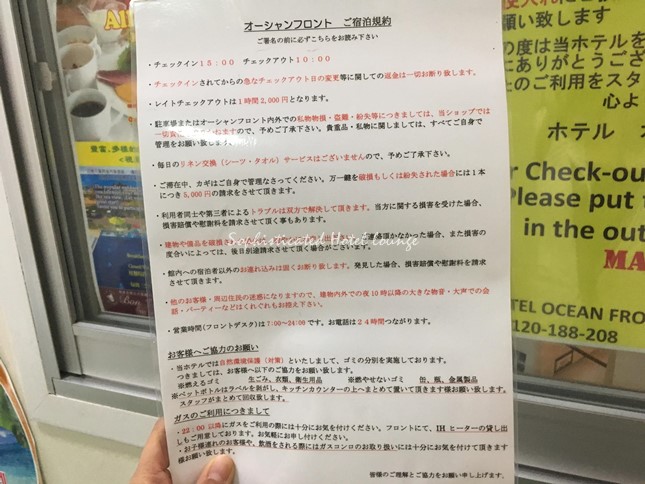 オーシャンフロント　ご宿泊規約
ご署名の前に必ずこちらをお読み下さい
・チェックイン15：00　チェックアウト10：00
・チェックインされてからの急なチェックアウト日の変更等に関しての返金は一切お断り致します。
・レイトチェックアウトは1時間2,000円となります。
・駐車場またはオーシャンフロント内外での私物物損・盗難・紛失等につきましては、当ショップでは
一切責任を負いかねますので、予めご了承下さい。貴重品・私物に関しましては、すべてご自身で
管理をお願い致します。
・毎日のリネン交換（シーツ・タオル）サービスはございませんので、予めご了承下さい。
・ご滞在中、カギはご自身で管理なさってください。万一鍵を破損もしくは紛失された場合には1本
につき5,000円の請求をさせて頂きます。
・利用者同士や第三者によるトラブルは双方で解決して頂きます。当方に関する損害を受けた場合、
損害賠償や慰謝料を請求させて頂く事もあります。
・建物や備品を破損さ
Sophisticated Hotel Lounge
連絡須かなかった場合、また損害の
度合いによっては、後日別途請求させて頂く場合がございます。
・館内への宿泊者以外のお連れ込みは固くお断り致します。発見した場合、損害賠償や慰謝料を請求
させて頂きます。
・他のお客様・周辺住民の迷惑になりますので、建物内外での夜10時以降の大きな物音・大声での会
話・パーティーなどはくれぐれもお控え下さい。
・営業時間(フロントデスク)は7:00～24:00です。お電話は24時間つながります。
お客様へご協力のお願い
・当ホテルでは自然環境保護（対策）といたしまして、ゴミの分別を実施しております。
つきましては、お客様へ以下のご協力をお願い致します。
※燃えるゴミ　生ごみ、衣類、衛生用品　※燃やせないゴミ　缶、瓶、金属製品
※ペットボトルはラベルを剥がし、キッチンカウンターの上へまとめて置いて頂きます様お願い致します。
スタッフがまとめて回収致します。
ガスのご利用につきまして
・22：00以降にガスをご利用の際には十分にお気を付けください。フロントにて、IHヒーターの貸し出
しもご用意しております。お気軽にお申し付けください。
・お子様連れのお客様や、飲酒をされる際にはガスコンロのお取り扱いには十分にお気を付けて頂きます
様お願い致します。
皆様のご理解とご協力をお願い申し上げます。
願い致します
の度は当ホテルを
にありがとうござ
のご利用をスタ
心よ
ホテル　オ
r Check-ou
Please put
in the out
MA
TEL OCEAN FRO
120-188-208